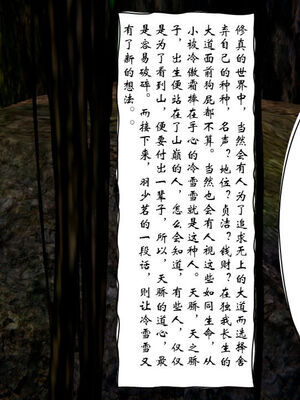 修真的世界中，当然会有人为了追求无上的大道而选择舍
弃自己的种种，名声？地位？贞洁？钱财？在独我长生的
大道面前狗屁都不算。当然也会有人视这些如同生命，从
小被冷傲霜捧在手心的冷雪雪就是这种人。天骄，天之骄
子，出生便站在了山巅的人，怎么会知道，有些人，仅仅
是为了看到山，便要付出一辈子，所以，天骄的道心，最
是容易破碎。而接下来，羽少茗的一段话，则让冷雪雪又
有了新的想法。。